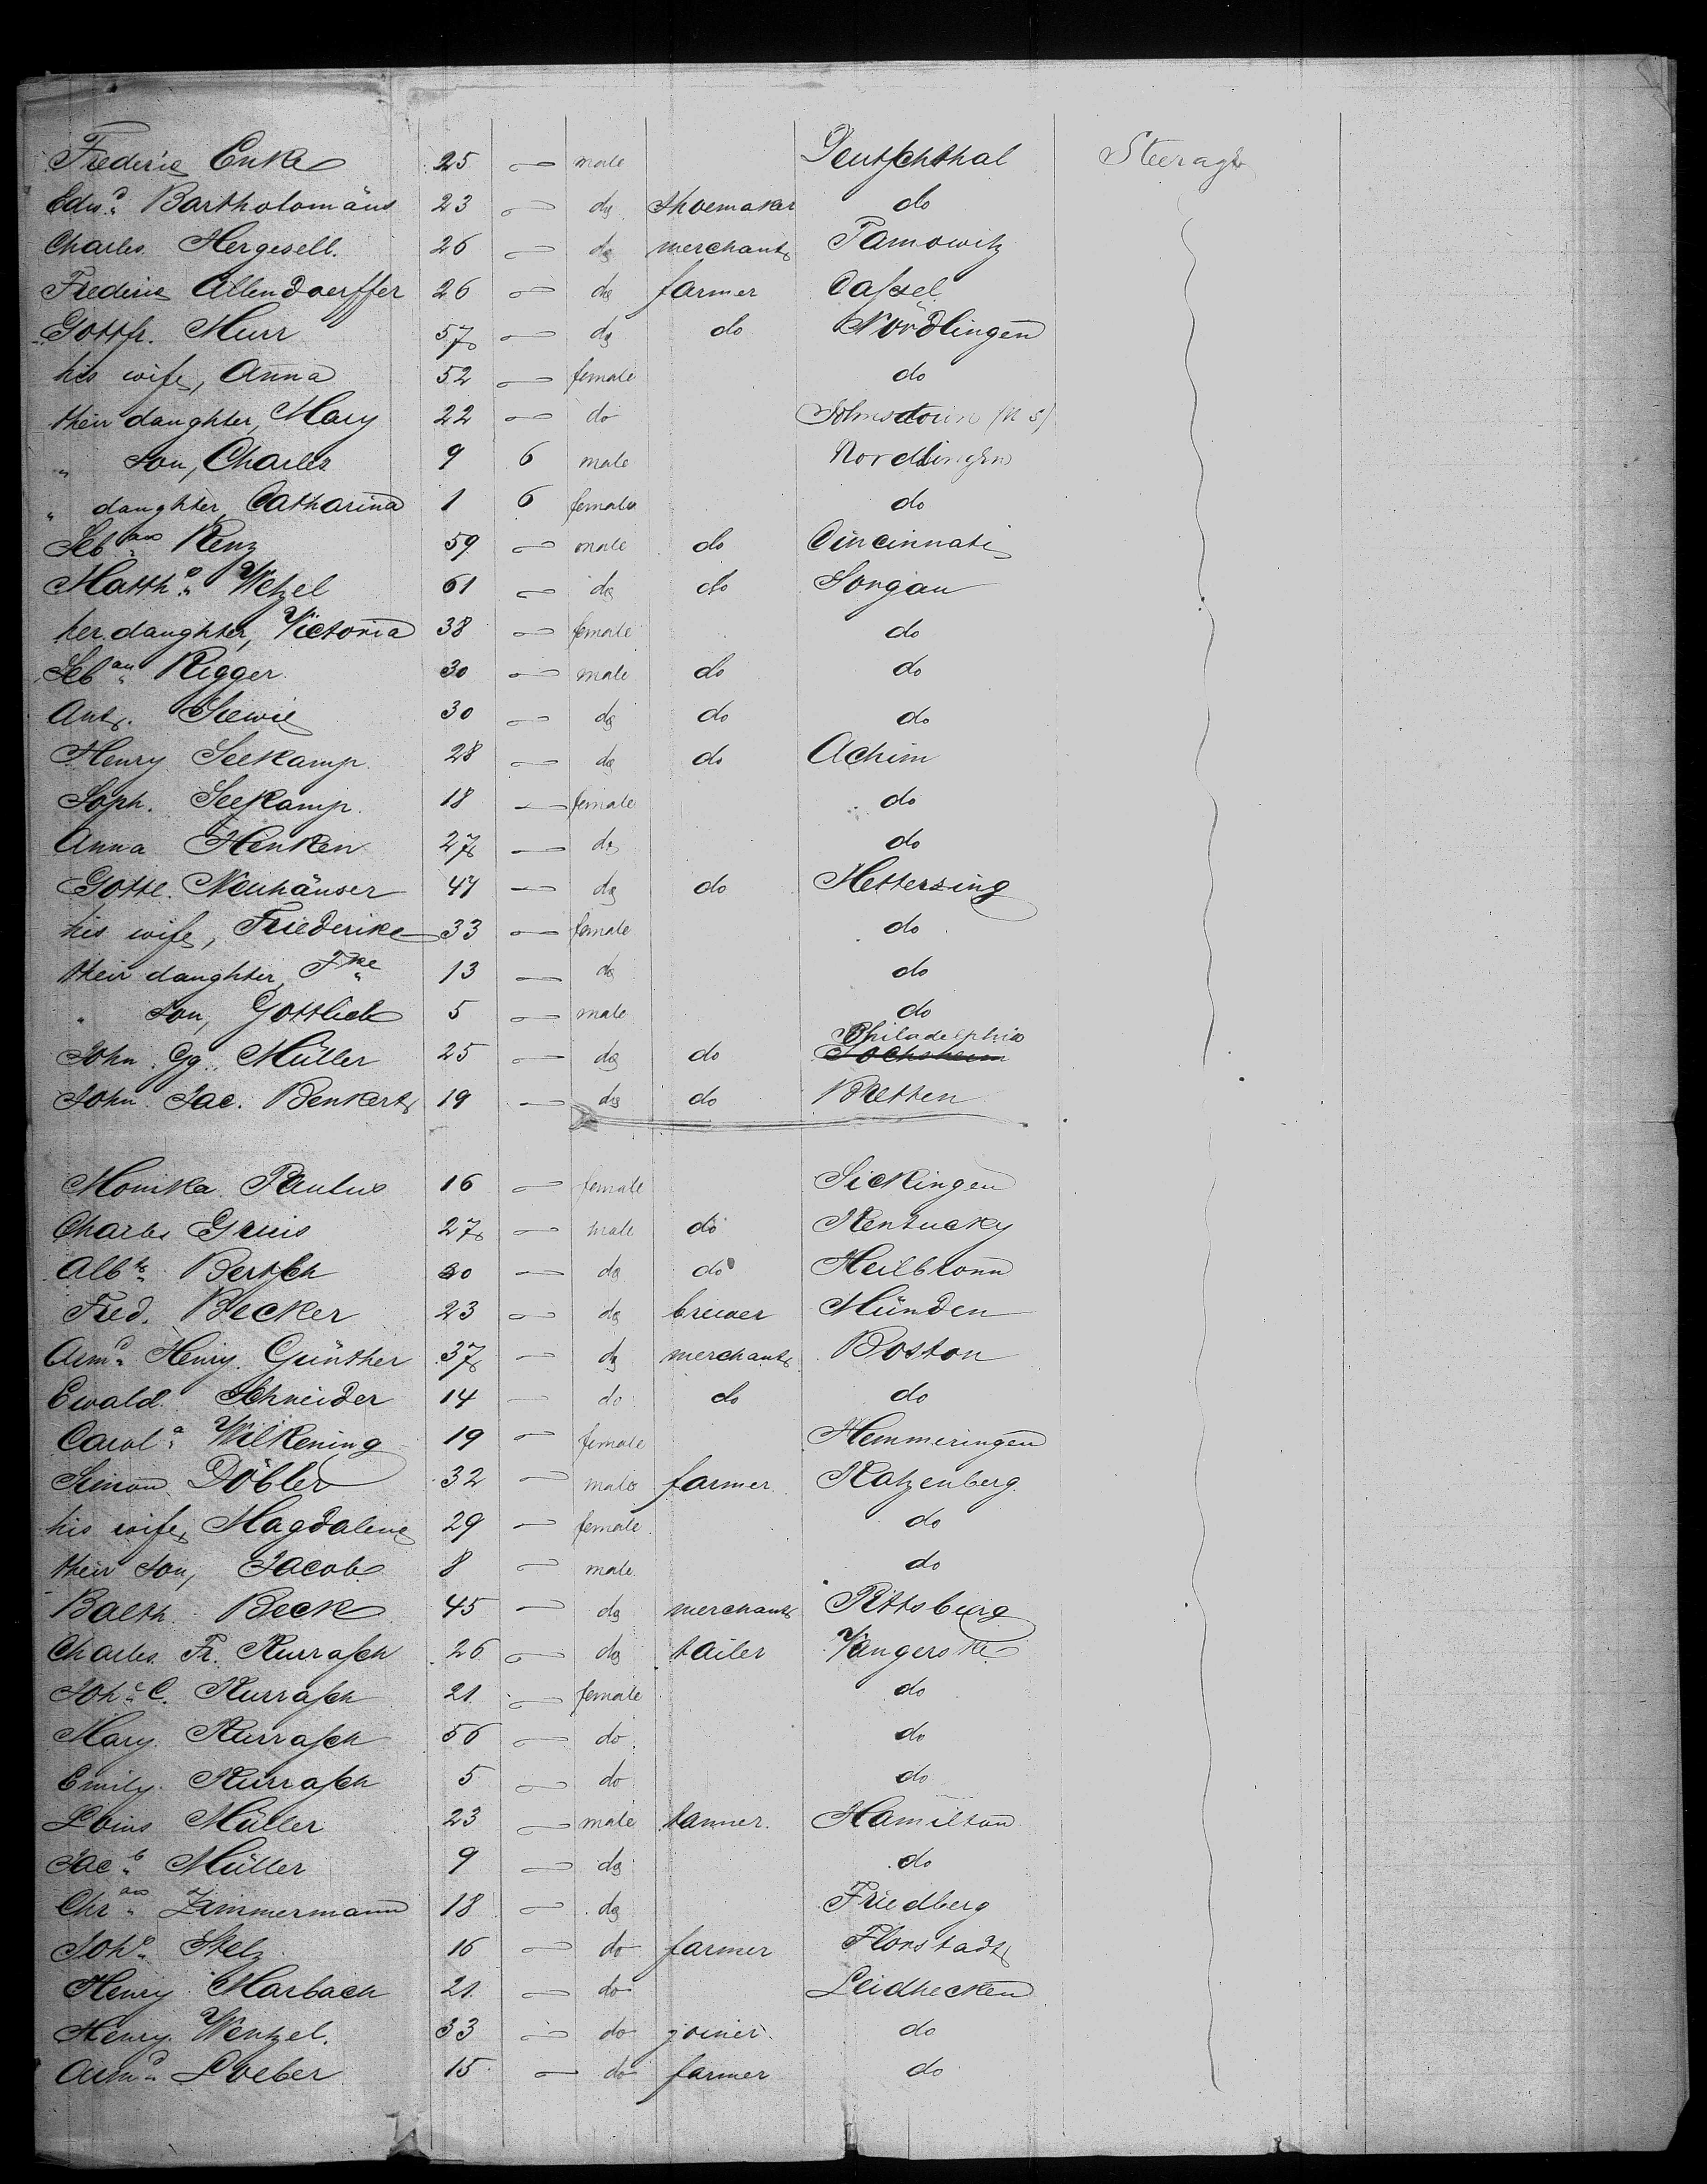 Frederic Enke 25 — male Deutschthal Steerage
Edwd. Bartholomäus 23 — do shoemaker do
Charles Hergesell. 26 — do merchant Tarnowitz
Frederic Allendoerffer 26 — do farmer Cassel
Gottfr. Murr 57 — do do Nördlingen
his wife, Anna 52 — female do
their daughter, Mary 22 — do
" son, Charles 9 6 male Nordlingen
" daughter, Catharina 1 6 female do
Seban Renz 59 — male do Cincinnati
Matth. Wetzel 61 — do do Sorgau
her daughter, Victoria 38 — female do
Seban Rigger 30 — male do do
Ant. 30 — do do do
Henry Seekamp 28 — do do Achim
Soph. Seekamp. 18 — female do
Anna Henken 27 — do do
Gottl. Neuhäuser 47 — do do Hettersing
his wife, Friederike 33 — female do
their daughter, Fke 13 — do do
" son, Gottlieb 5 — male do
Philadelphia
John Gg. Müller 25 — do do
John Jac. Benkert 19 — do do Bretten
Monika Paulus 16 — female Sickingen
Charles 27 — male do Kentucky
Albt. Bertsch 30 — do do Heilbronn
Fred. Becker 23 — do brewer Münden
Armd. Henry Günther 37 — do merchant Boston
Ewald Schneider 14 — do do do
Carola. Wilkening 19 — female Hemmeringen
Simon Döbler 32 — male farmer Katzenberg
his wife, Magdalene 29 — female do
their son, Jacob 8 — male do
Balth. Beck 45 — do merchant Pittsburg
Charles Fr. Kurrasch 26 — do tailer Vangerske
Johe. C. Kurrasch 21 — female do
Mary Kurrasch 56 — do do
Emily Kurrasch 5 — do do
Louis Müller 23 — male tanner. Hamilton
Jacb. Müller 9 — do do
Chran. Zimmermann 18 — do Friedberg
Johs. Stelz 16 — do farmer Florstadt
Henry Marbach 21 — do Leidhecken
Henry Wentzel. 33 — do joiner. do
Armd. Loeber 15 — do farmer do